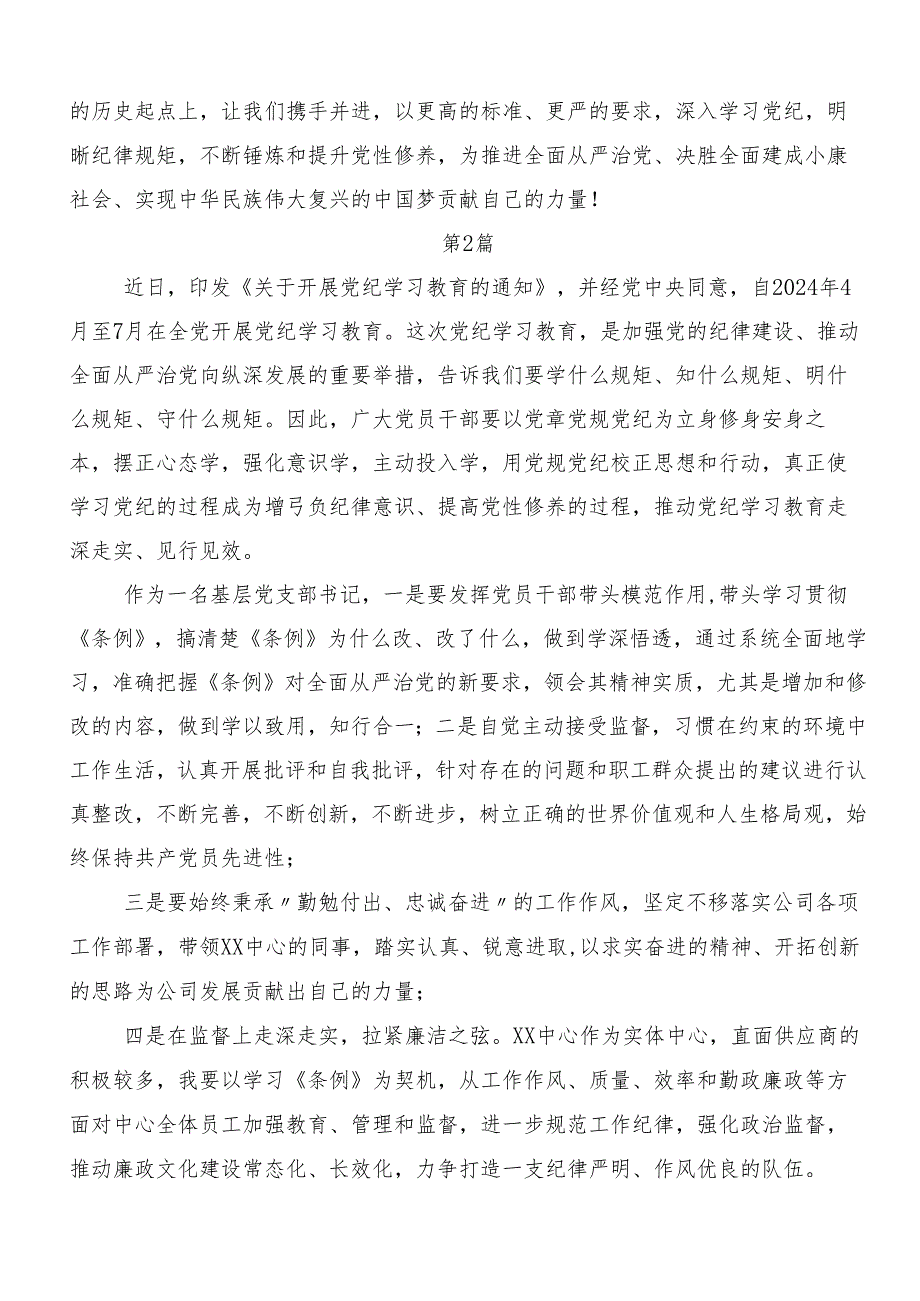 的历史起点上，让我们携手并进，以更高的标准、更严的要求，深入学习党纪，明
晰纪律规矩，不断锤炼和提升党性修养，为推进全面从严治党、决胜全面建成小康
社会、实现中华民族伟大复兴的中国梦贡献自己的力量！
第2篇
近日，印发《关于开展党纪学习教育的通知》，并经党中央同意，自2024年4
月至7月在全党开展党纪学习教育。这次党纪学习教育，是加强党的纪律建设、推动
全面从严治党向纵深发展的重要举措，告诉我们要学什么规矩、知什么规矩、明什
么规矩、守什么规矩。因此，广大党员干部要以党章党规党纪为立身修身安身之
本，摆正心态学，强化意识学，主动投入学，用党规党纪校正思想和行动，真正使
学习党纪的过程成为增弓负纪律意识、提高党性修养的过程，推动党纪学习教育走
深走实、见行见效。
作为一名基层党支部书记，一是要发挥党员干部带头模范作用,带头学习贯彻
《条例》，搞清楚《条例》为什么改、改了什么，做到学深悟透，通过系统全面地学
习，准确把握《条例》对全面从严治党的新要求，领会其精神实质，尤其是增加和修
改的内容，做到学以致用，知行合一；二是自觉主动接受监督，习惯在约束的环境中
工作生活，认真开展批评和自我批评，针对存在的问题和职工群众提出的建议进行认
真整改，不断完善，不断创新，不断进步，树立正确的世界价值观和人生格局观，始
终保持共产党员先进性；
三是要始终秉承〃勤勉付出、忠诚奋进〃的工作作风，坚定不移落实公司各项
工作部署，带领XX中心的同事，踏实认真、锐意进取,以求实奋进的精神、开拓创新
的思路为公司发展贡献出自己的力量；
四是在监督上走深走实，拉紧廉洁之弦。XX中心作为实体中心，直面供应商的
积极较多，我要以学习《条例》为契机，从工作作风、质量、效率和勤政廉政等方
面对中心全体员工加强教育、管理和监督，进一步规范工作纪律，强化政治监督，
推动廉政文化建设常态化、长效化，力争打造一支纪律严明、作风优良的队伍。